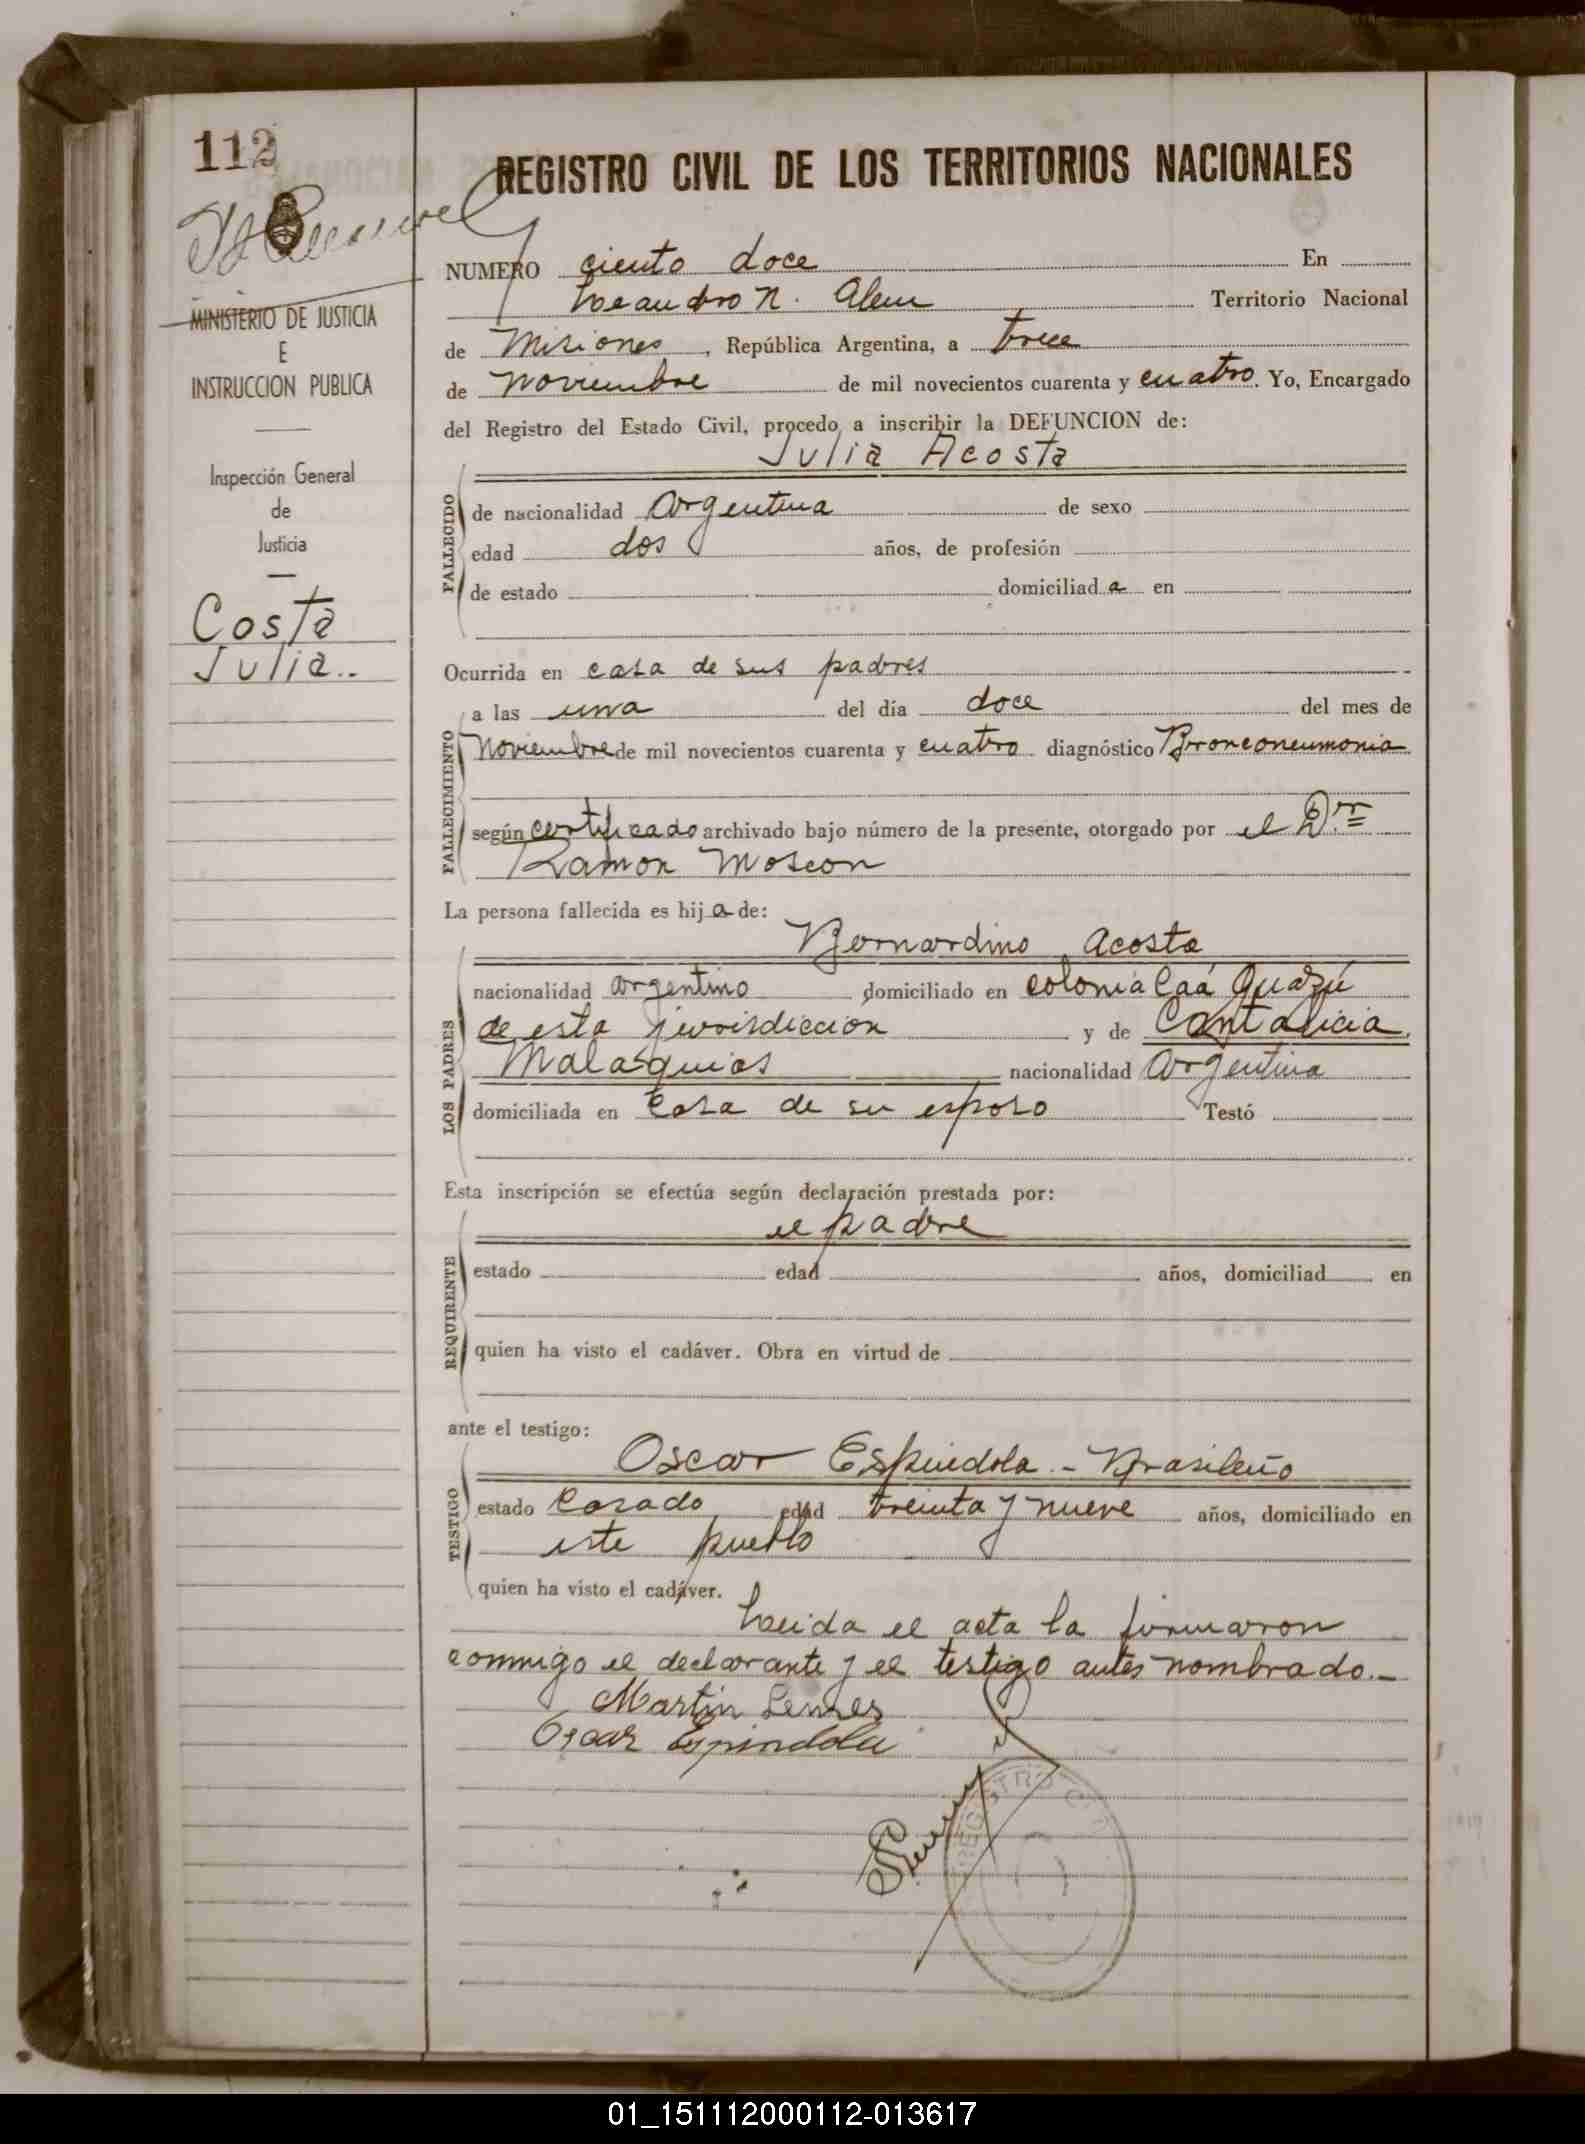 112
REGISTRO CIVIL DE LOS TERRITORIOS NACIONALES
NUMERO ciento doce En
Leandro N. Alem Territorio Nacional
MINISTERIO DE JUSTICIA
E
INSTRUCCION PUBLICA
de Misiones, República Argentina, a trece
de noviembre de mil novecientos cuarenta y cuatro. Yo, Encargado
del Registro del Estado Civil, procedo a inscribir la DEFUNCION de:
Julia Acosta
Inspección General
de
Justicia
Costa
Julia..
FALLECIDO
de nacionalidad Argentina de sexo
edad dos años, de profesión
de estado domiciliada en
Ocurrida en casa de sus padres
FALLECIMIENTO
a las una del día doce del mes de
Noviembre de mil novecientos cuarenta y cuatro diagnóstico Bronconeumonia
según certificado archivado bajo número de la presente, otorgado por el Dr.
Ramon Moscon
La persona fallecida es hija de:
LOS PADRES
Bernardino Acosta
nacionalidad argentino domiciliado en colonia Caá Guazú
de esta jurisdiccion y de Cantalicia
Malaquias nacionalidad Argentina
domiciliada en Casa de su esposo Testó
Esta inscripción se efectúa según declaración prestada por:
REQUIRENTE
el padre
estado edad años, domiciliad en
quien ha visto el cadáver. Obra en virtud de
ante el testigo:
TESTIGO
Oscar Espindola - Brasileño
estado Casado edad treinta y nueve años, domiciliado en
este pueblo
quien ha visto el cadáver.
Leida el acta la firmaron
conmigo el declarante y el testigo antes nombrado.-
Martin
Oscar Espindola
REGISTRO CIVIL
01_151112000112-013617